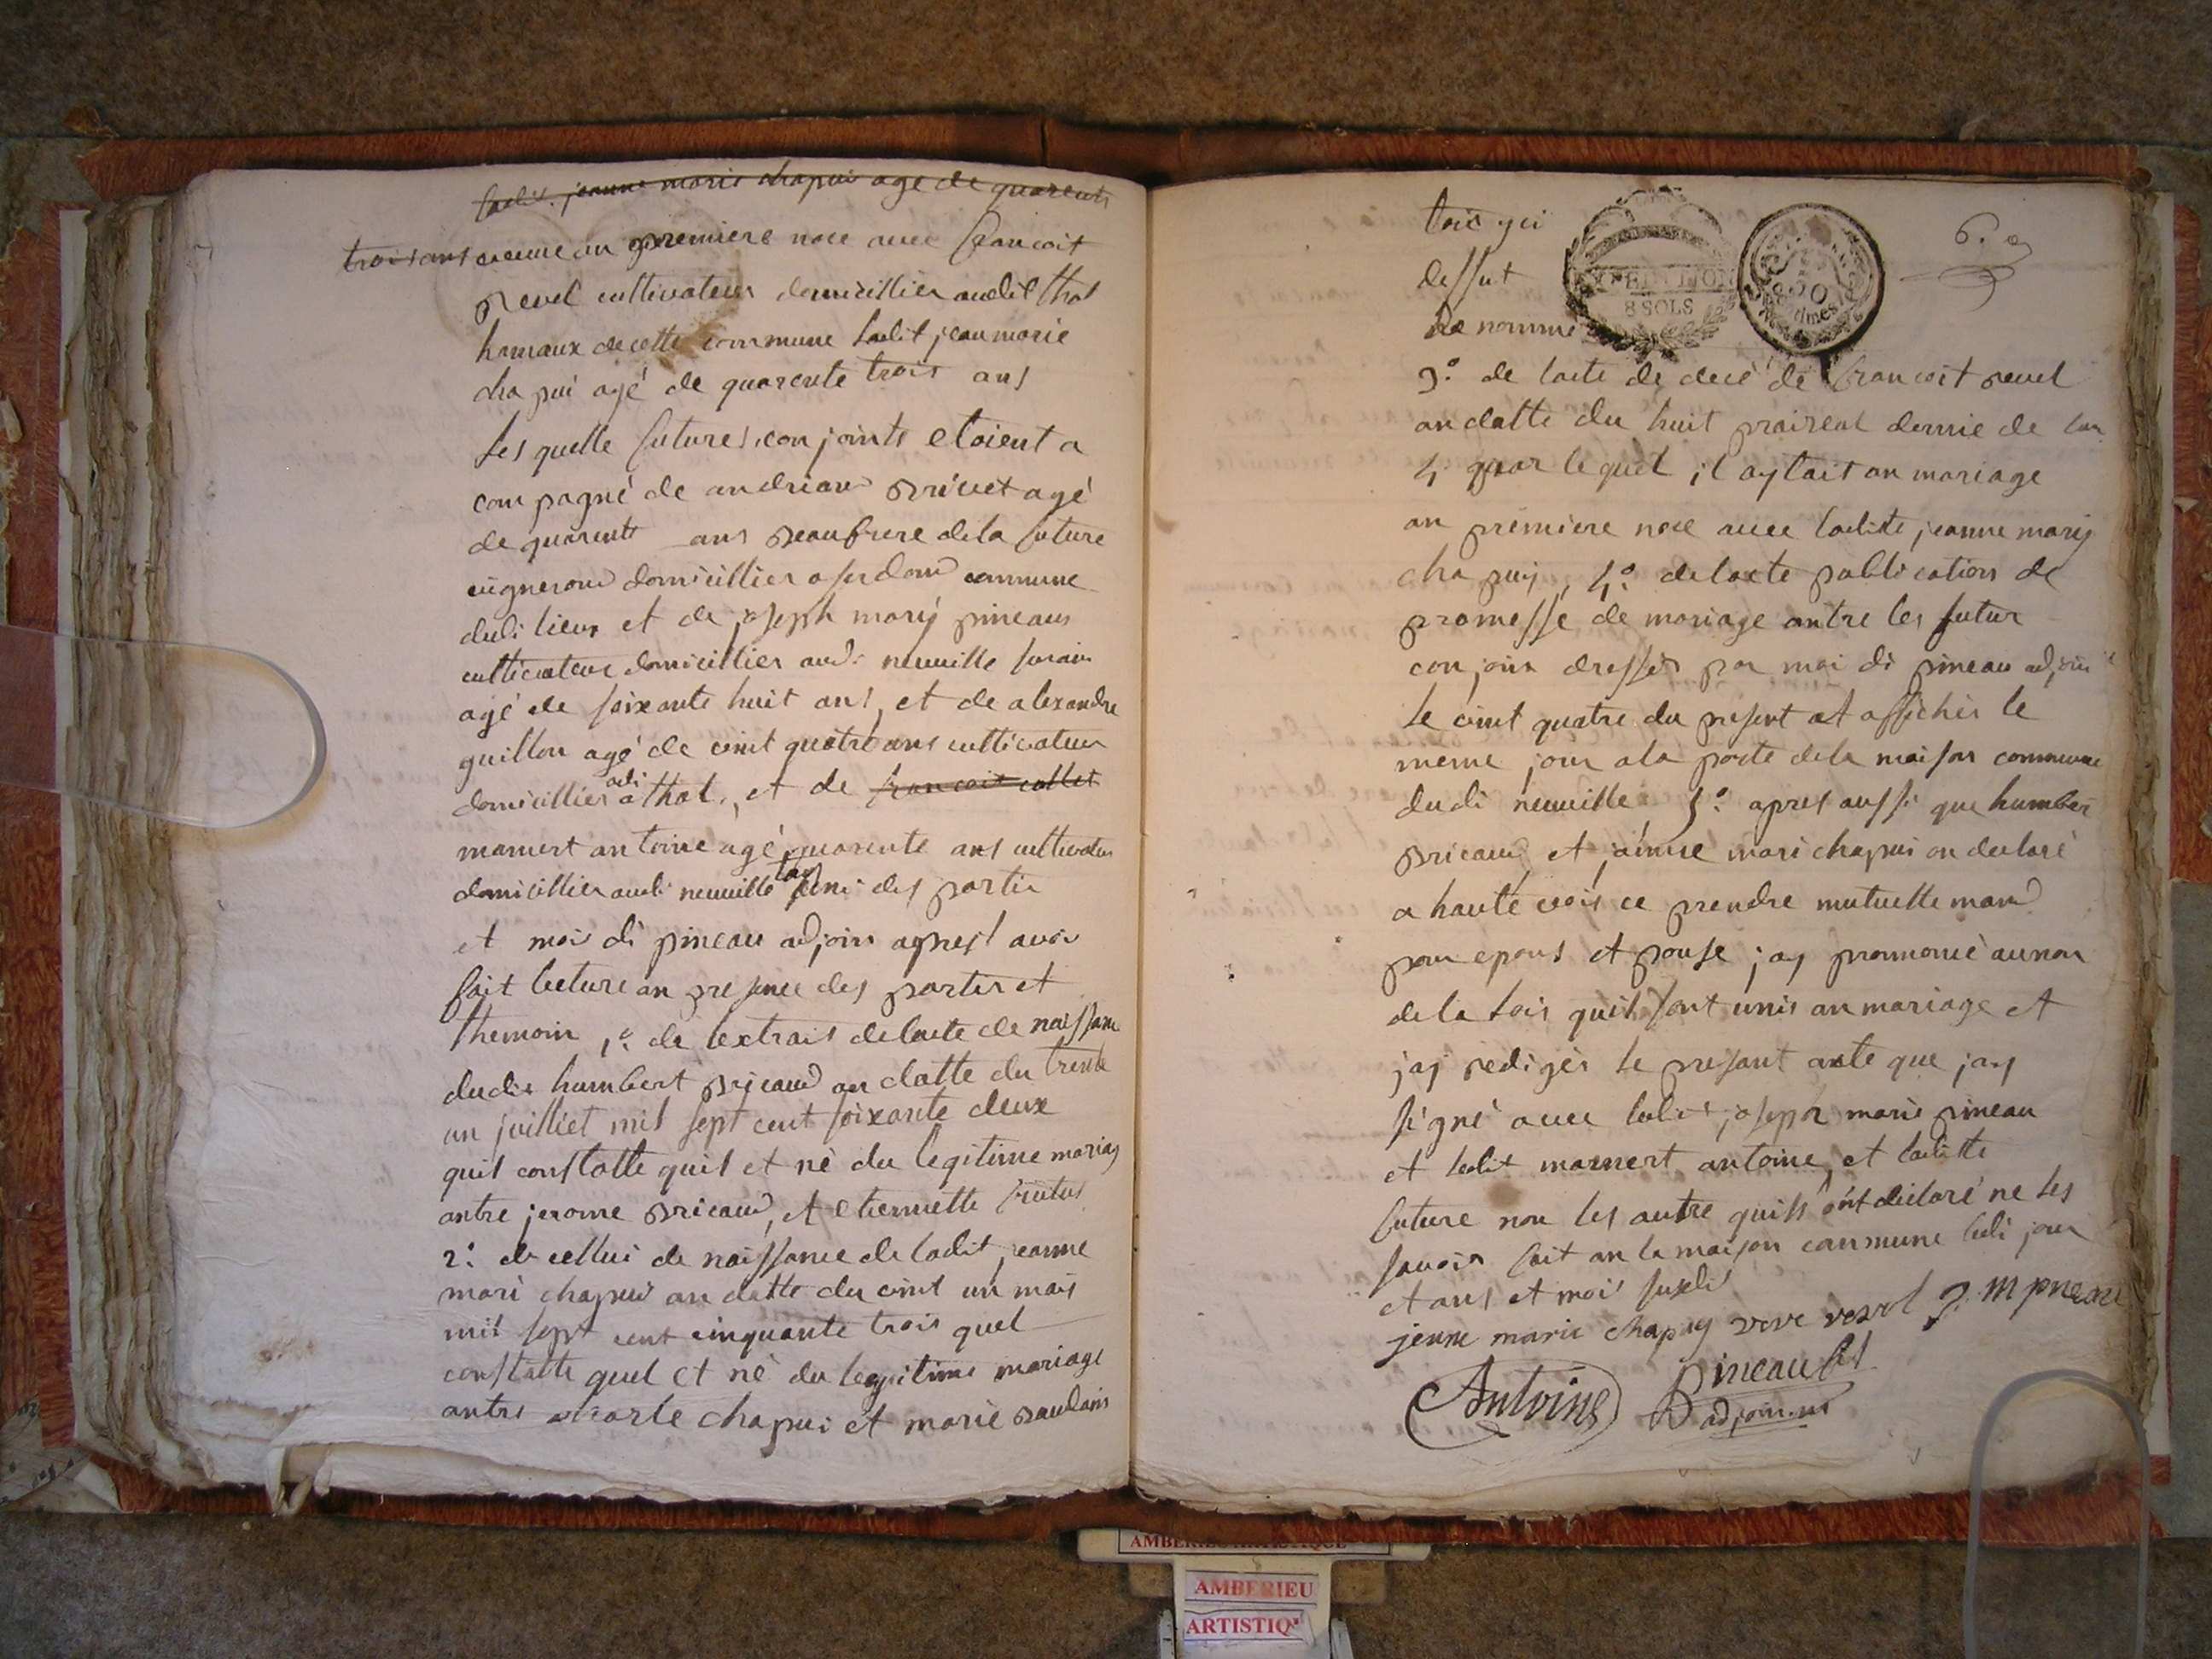 ladit jeanne marie chapui age de quarente
trois ans veuve an premiere noce avec francoit
revel cultivateur domicillier audit thol
hamaux de cette commune ladit jean marie
chapui agé de quarente trois ans
les quelle futures conjoints etoient a
compagné de andrian privet agé
de quarente ans beaufrere de la future
vigneron domicillier a jerdon commune
dudi lieux et de joseph marÿ pineaus
cultivateur domicillier audi neuville surain
agé de soixante huit ans, et de alexandre
guillon agé de cint quatre ans cultivateur
domicillier adi a thol, et de francois collet
mamert antoine agé quarente ans cultivateur
domicillier audi neuville tous ami des partie
et moi di pineau adjoin apres l avoir
fait lecture an presence des partis et
themoin 1° de lextrais de lacte de naissane
dudis humbert bricaud an datte du trente
un juilliet mil sept cent soixante deux
quil constatte quil et né du legitime mariag
antre jerome bricaud, et etiennette
2° de cellui de naissance de ladit jeanne
mari chapui an datte du cint un mais
mil sept cent cinquante trois quel
constatte quel et né du legitime mariage
antre charle chapui et marie
toic yci
dessut
de nommé
EXPEDITION
8 SOLS
50
6.
3° de lacte de decé de francoit revel
an datte du huit praireal dernie de lan
4 par lequel il aytait an mariage
an premiere noce avec ladite jeanne mariy
chapuy, 4° de lacte publication de
promesse de mariage antre les futur
conjoin dresses par moi di pineau adjoin
le cint quatre du present et affichés le
meme jour a la porte de la maison commune
dudi neuville, 5° apres aussi que humber
bricaud et jeinne mari chapui on declaré
a haute vois ce prendre mutuellemand
pour epous et pouse jay prononcé aunon
de la lois quil sont unis an mariage et
jaj redigés le presant acte que jay
signé avec ledit joseph marie pineau
et ledit mamert antoine, et ladite
future non les autre quils ont déclaré ne les
savoir fait an la maison commune ledi jour
et ans et mois susdi
jenne marie chapuy veve revol J. M pineau
Antoine Pineau fils
adjoin
AMBERIEU ARTISTIQUE
AMBERIEU
ARTISTIQ